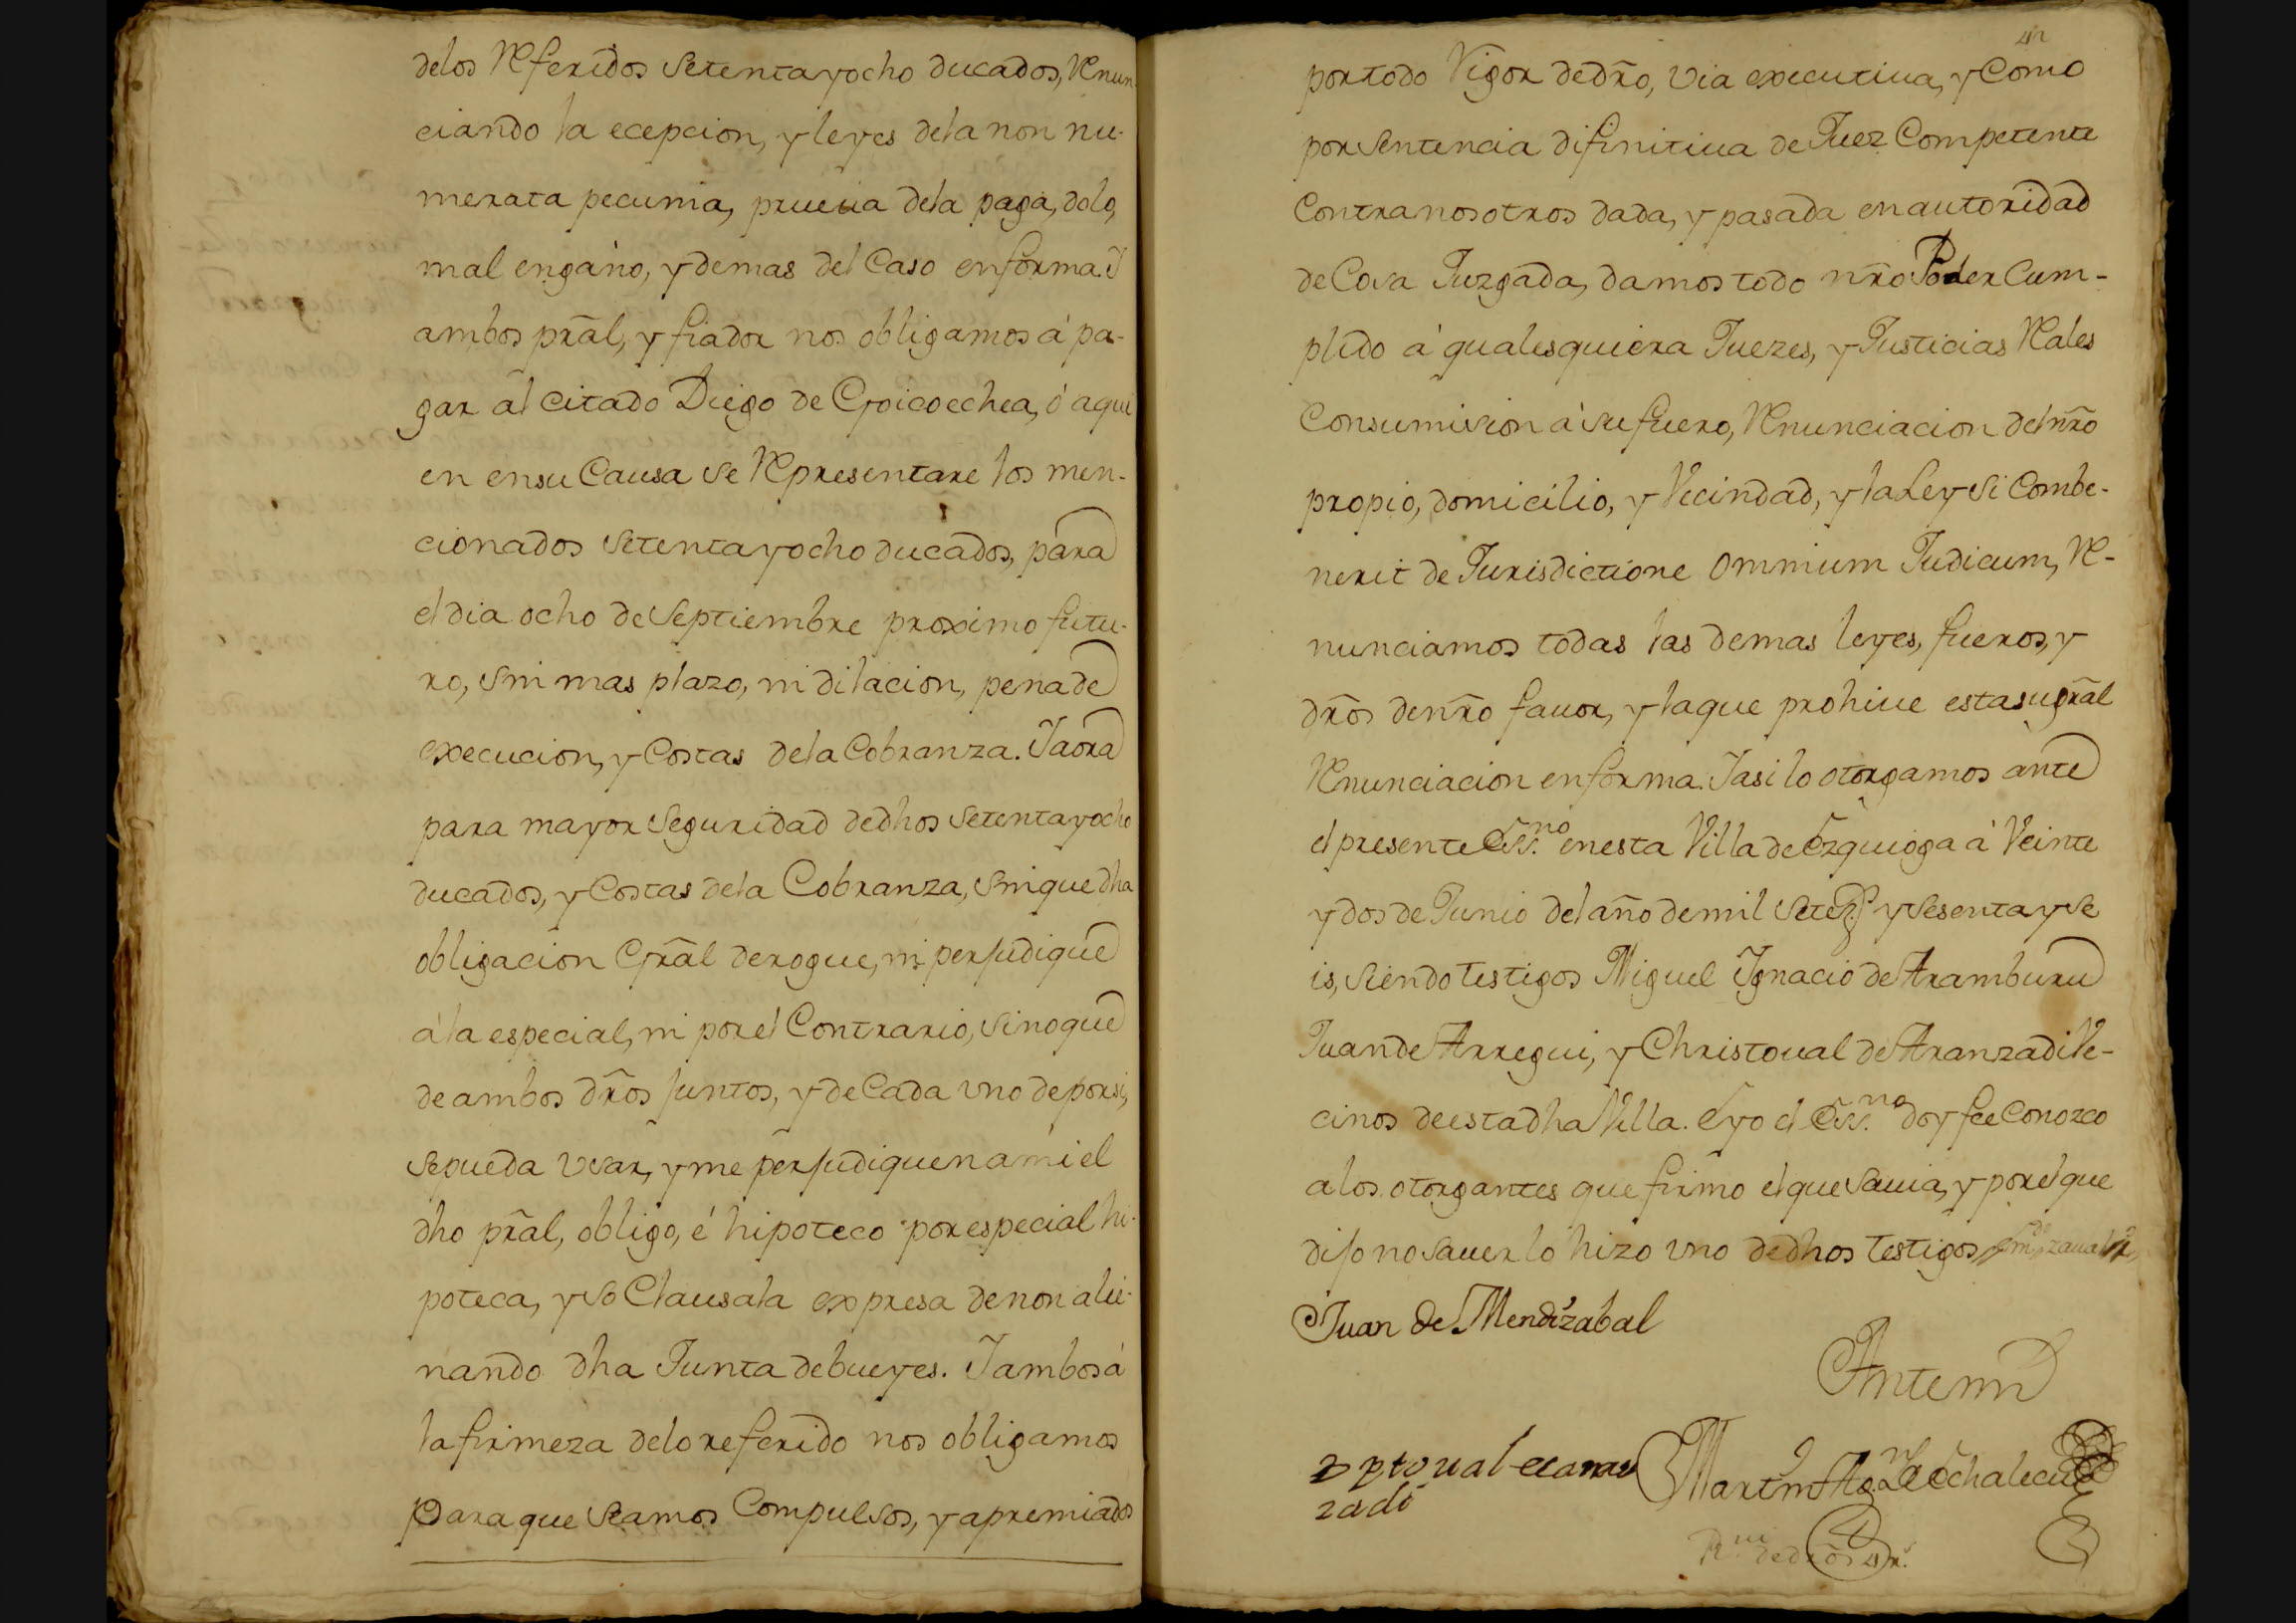 delos Referidos Setenta y ocho ducados, Renun-
ciando la ecepcion, y leyes dela non nu-
merata pecunia, prueua dela paga, dolo,
mal engaño, y demas del Caso en forma. I
ambos prãl, y fiador nos obligamos á pa-
gar al citado Diego de Goicoechea, ó aqui
en ensu Causa se Representare los men-
cionados Setenta y ocho ducados, para
el dia ocho de Septiembre proximo futu-
ro, sin mas plazo, ni dilacion, pena de
execucion, y Costas dela Cobranza. Iaora
para mayor Seguridad dedhos Setenta y ocho
ducados, y Costas dela Cobranza, sin que dha
obligacion Grãl derogue, ni perjudique
á la especial, ni por el Contrario, sino que
de ambos drõs juntos, y de Cada vno de porsi,
se pueda vsar, y me perjudiquen a mi el
dho prãl, obligo, é hipoteco por especial hi-
poteca, y so Clausala expresa de non alie-
nando dha Junta de bueyes. I ambos á
la firmeza delo referido nos obligamos
Para que Seamos Compulsos, y apremiados
por todo Vigor de drõ, via executiua, y Como
por Sentencia difinitiua de Juez Competente
Contra nosotros dada, y pasada en autoridad
de Cosa Juzgada, damos todo nrõ Poder Cum-
plido á qualesquiera Juezes, y Justicias Rales
Consumision á su fuero, Renunciacion del nrõ
propio, domicilio, y Vecindad, y la Ley Si Combe-
nerit de Jurisdictione Omnium Judicum, Re-
nunciamos todas las demas leyes, fueros, y
drõs de nrõ fauor, y la que prohiue esta su grãl
Renunciacion en forma. I asi lo otorgamos ante
el presente Ess.no en esta Villa de Ezquioga á Veinte
y dos de Junio del año de mil Setez.s y Sesenta y Se
is, Siendo testigos Miguel Ignacio de Aramburu
Juan de Arregui, y Christoual de Aranzadi Ve-
cinos de esta dha Villa. E yo el Ess.no doy fee Conozco
a los otorgantes que firmo el que Sauia, y por el que
dijo no Sauer lo hizo vno de dhos testigos
Juan de Mendizabal
Antemi
Xptoual de aran
zadi
Martin Ag.n de Ochalecu
R.ui de drõs 4 r.s